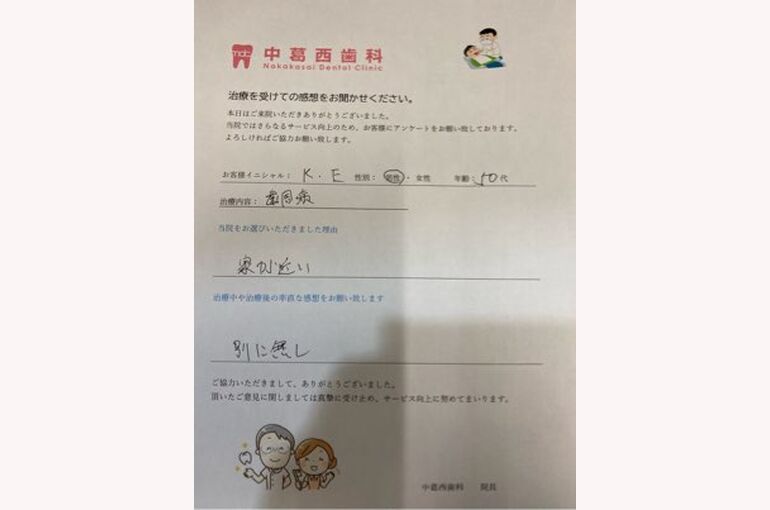 中葛西歯科
Nakakasai Dental Clinic
治療を受けての感想をお聞かせください。
本日はご来院いただきありがとうございました。
当院ではさらなるサービス向上のため、お客様にアンケートをお願い致しております。
よろしければご協力お願い致します。
お客様イニシャル： K . E 性別： 男性 ・ 女性 年齢： 50 代
治療内容： 歯周病
当院をお選びいただきました理由
家が近い
治療中や治療後の率直な感想をお願い致します
別に無し
ご協力いただきまして、ありがとうございました。
頂いたご意見に関しましては真摯に受け止め、サービス向上に努めてまいります。
中葛西歯科 院長